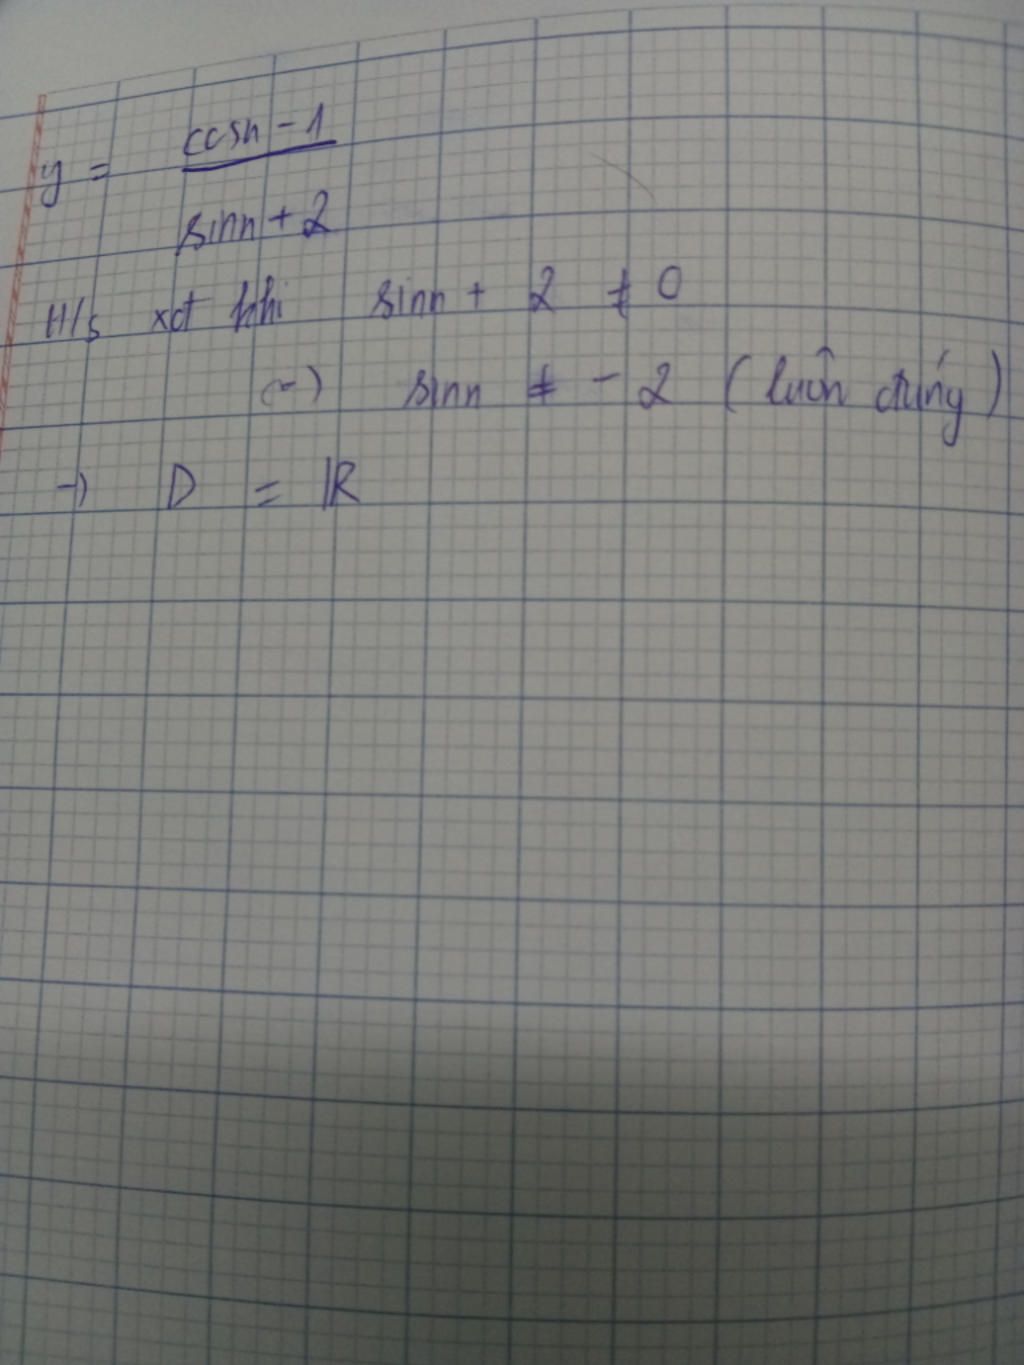 y = cosn - 1
sinn + 2
H/s xđ khi sinn + 2 ≠ 0
(-) sinn ≠ - 2 (luôn đúng)
→ D = R